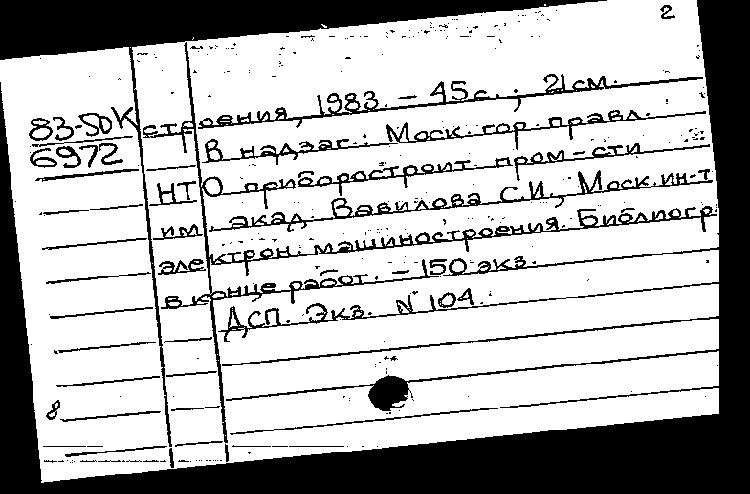 2
83-50К строения, 1983. – 45с. ; 21см.
6972 В надзаг.: Моск. гор. правл.
НТО приборостроит. пром-сти
им. акад. Вавилова С.И., Моск. ин-т
электрон. машиностроения. Библиогр.
в конце работ. – 150 экз.
ДСП. Экз. № 104.
8